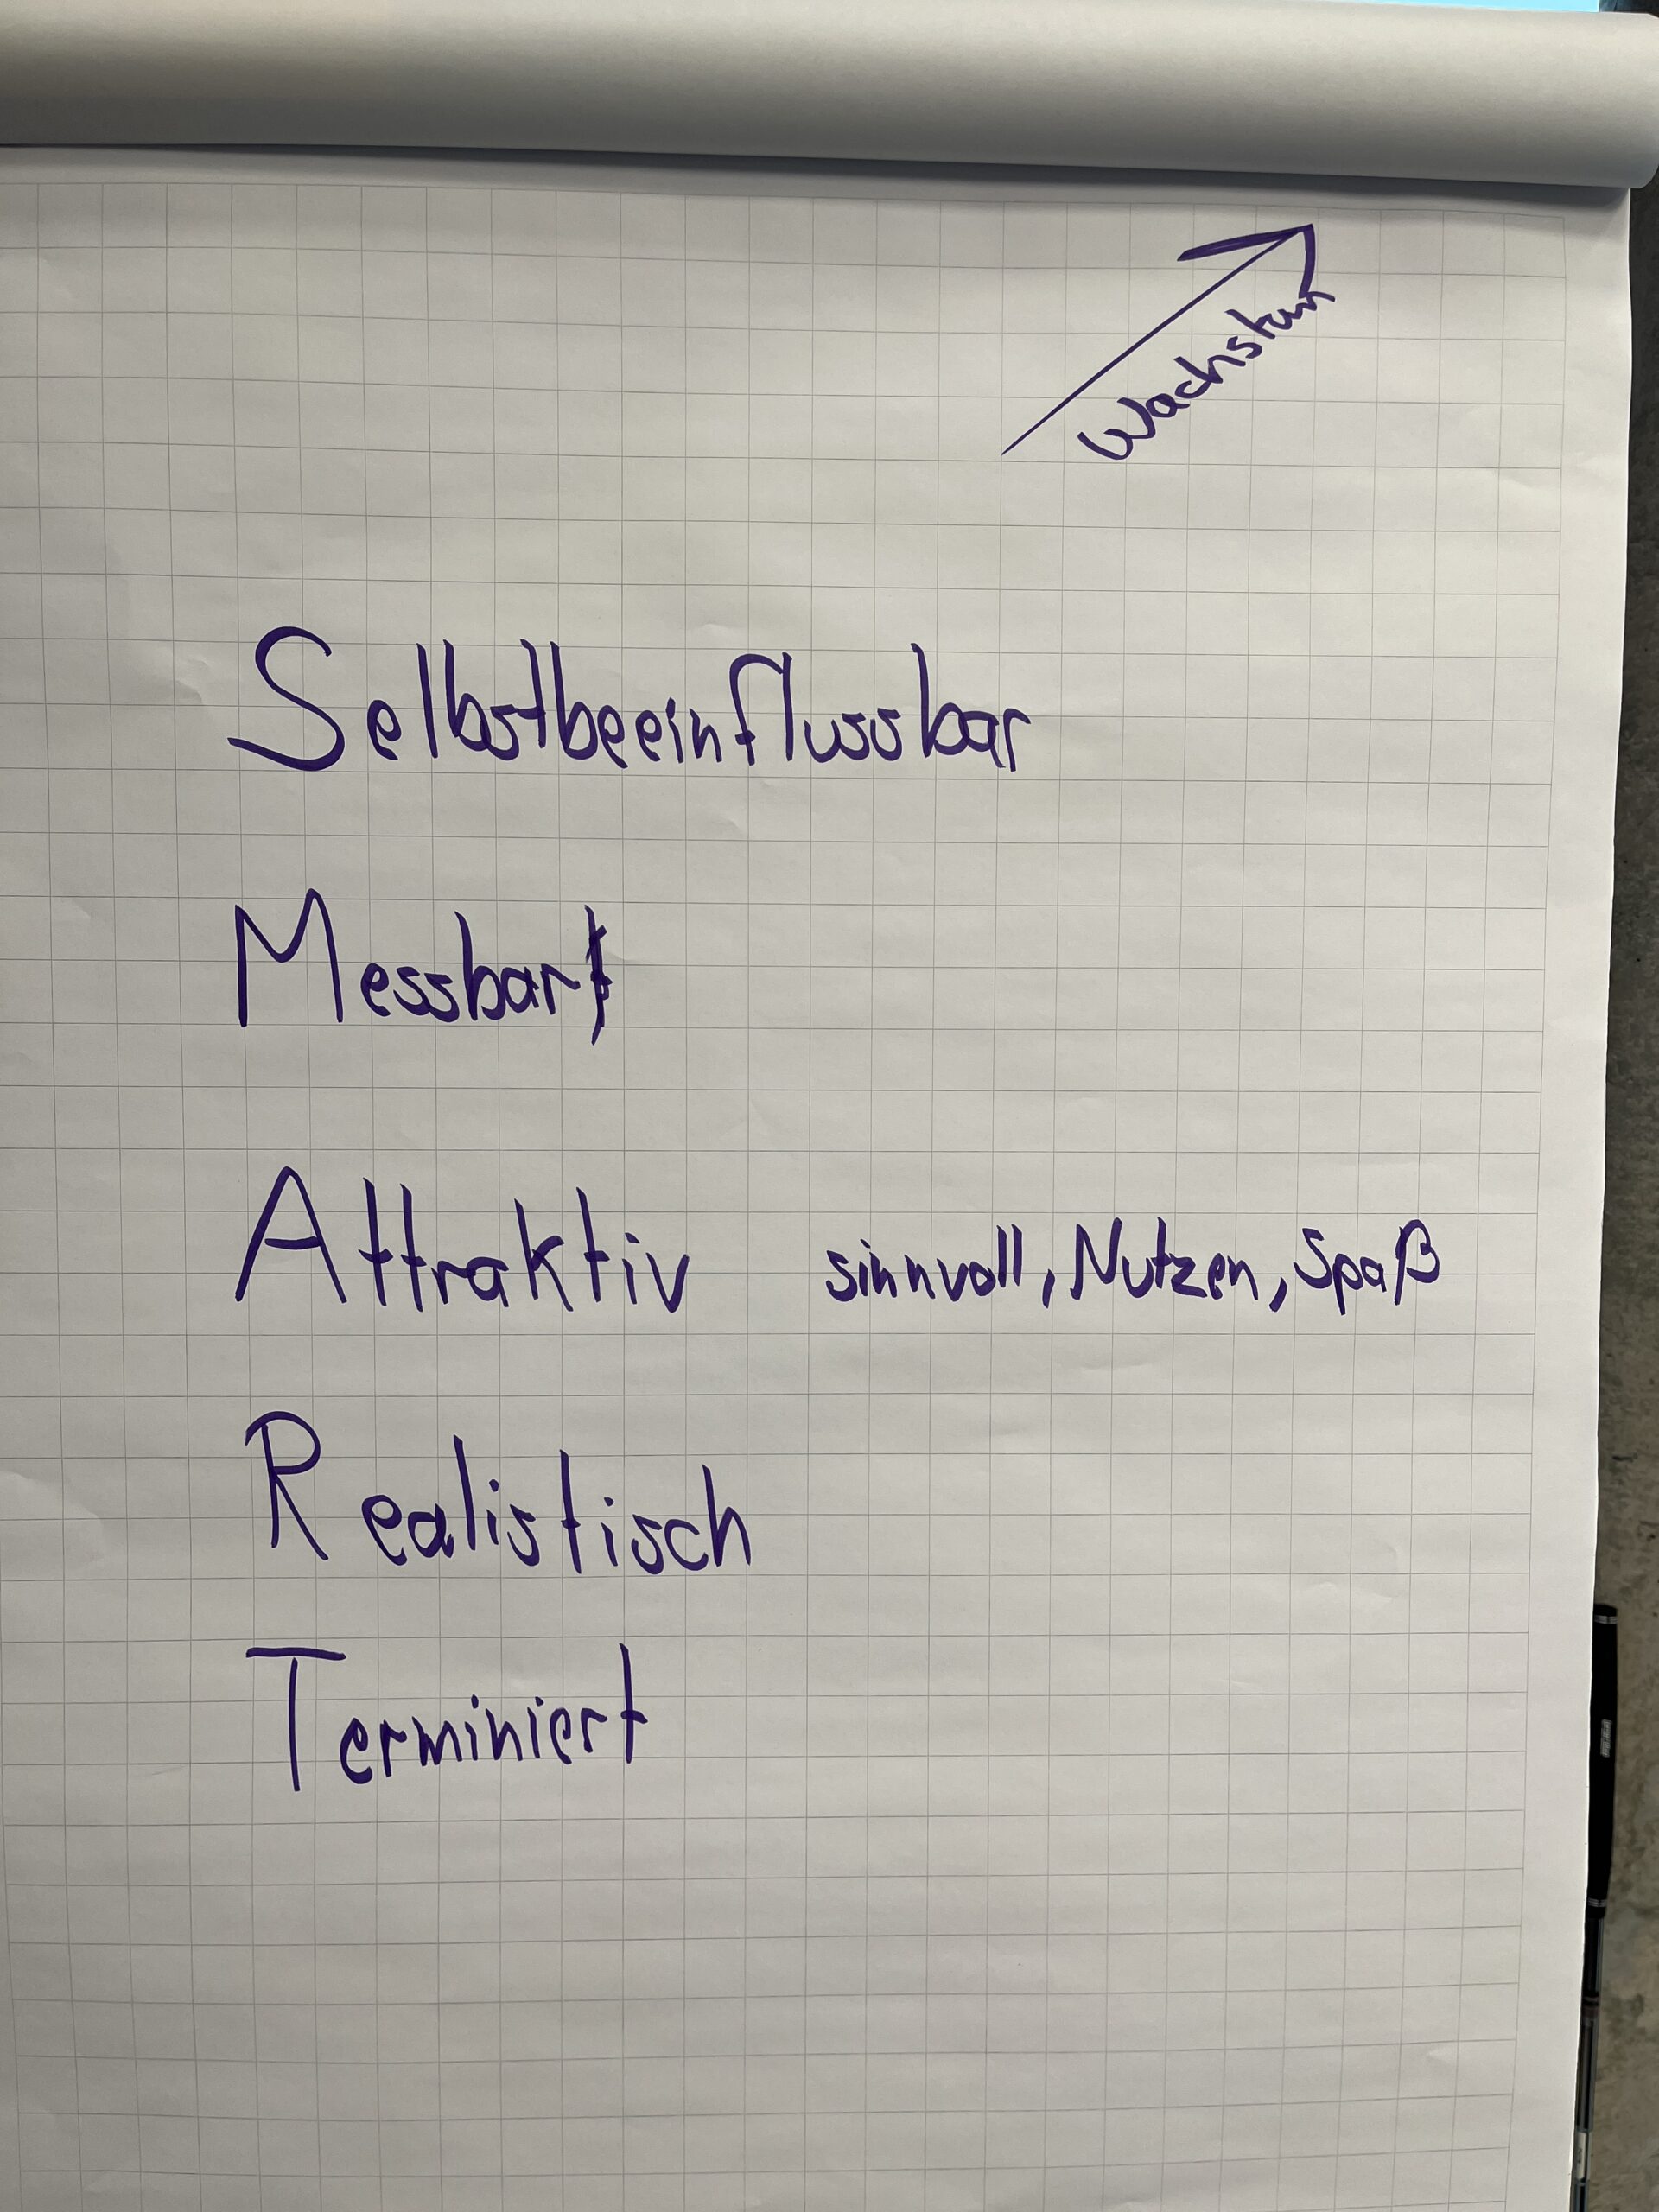 Wachstum
Selbstbeeinflussbar
Messbar
Attraktiv sinnvoll, Nutzen, Spaß
Realistisch
Terminiert